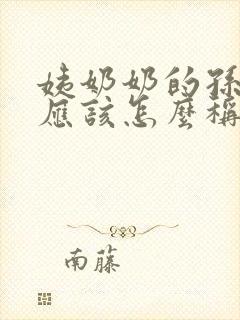 姨奶奶的孫
應該怎麼稱
南藤